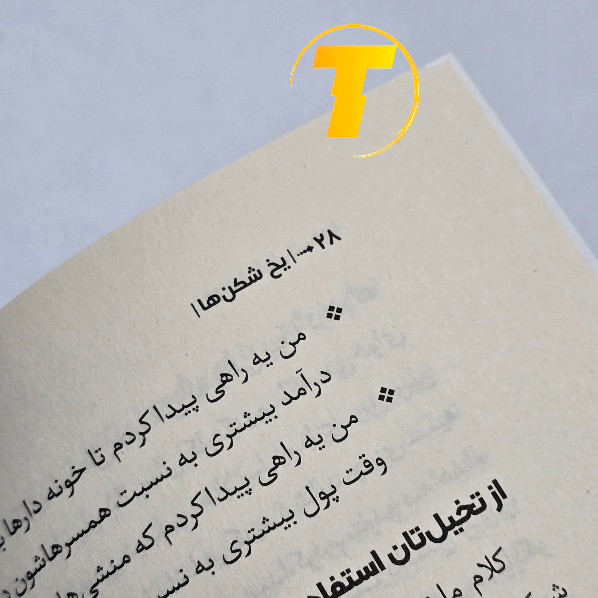 T
۲۸ | یخ شکن‌ها |
من یه راهی پیدا کردم تا خونه دارها
درآمد بیشتری به نسبت همسرهاشون
من یه راهی پیدا کردم که منشی‌ها
وقت پول بیشتری به
از تخیل‌تان
کلام ما